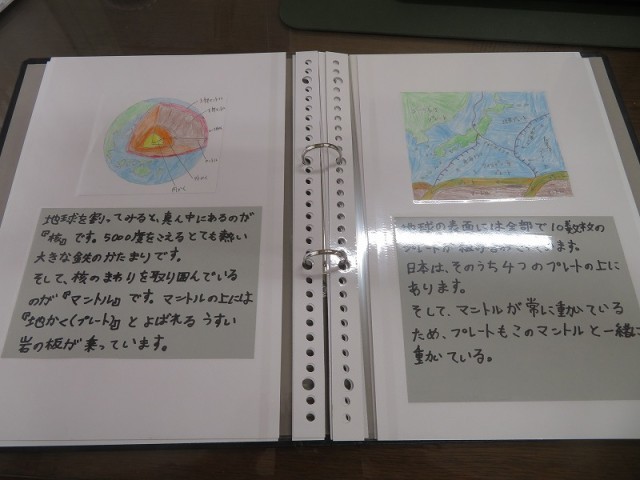 地球を割ってみると、真ん中にあるのが
『核』です。5000度をこえるとても熱い
大きな鉄のかたまりです。
そして、核のまわりを取り囲んでいる
のが『マントル』です。マントルの上には
『地かく(プレート)』とよばれるうすい
岩の板が乗っています。
地球の表面には全部で10数枚の
プレートが
日本は、そのうち4つのプレートの上に
あります。
そして、マントルが常に動いている
ため、プレートもこのマントルと一緒に
動いている。